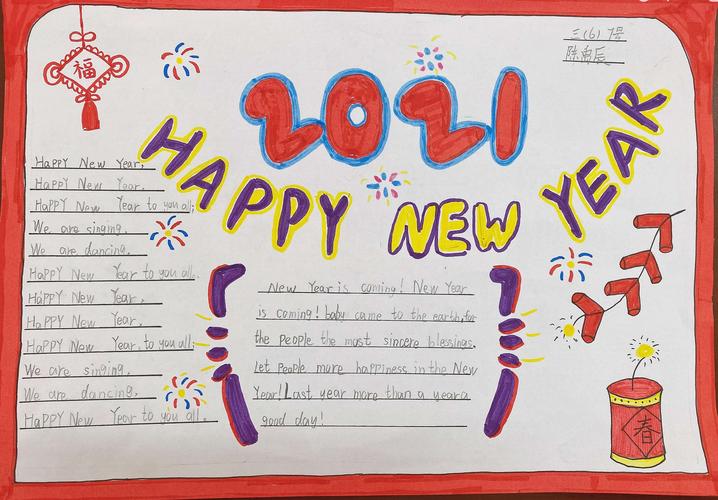 三(6) 7号
陈
福
2021
HAPPY NEW YEAR
HaPPY New Year,
HaPPY New Year.
HaPPY New Year to you all;
We are singing.
We are dancing.
HaPPY New Year to you all.
HaPPY New Year,
HaPPY New Year.
HaPPY New Year, to you all;
We are singing.
We are dancing.
HaPPY New Year to you all.
New Year is coming! New Year
is coming! baby came to the earth, for
the people the most sincere blessings.
Let people more happiness in the New
Year! Last year more than a year a
good day!
春